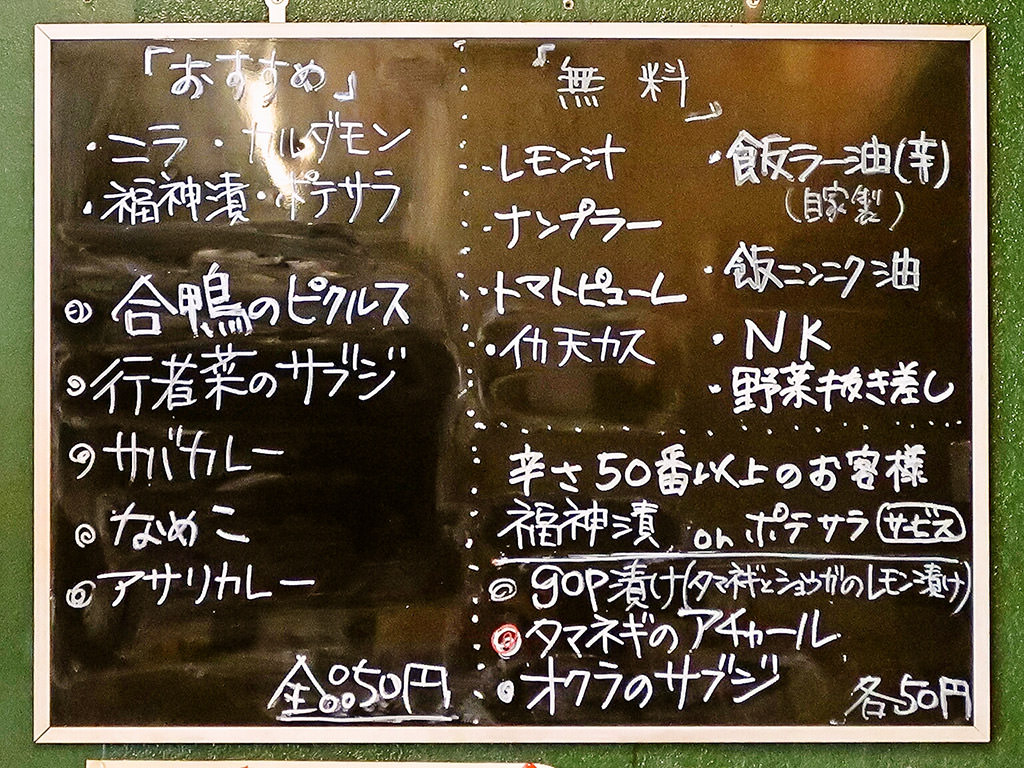 「おすすめ」
・ニラ・カルダモン
・福神漬・ポテサラ
合鴨のピクルス
行者菜のサブジ
サバカレー
なめこ
アサリカレー
全品50円
「無料」
・レモン汁
・ナンプラー
・トマトピューレ
・イカ天カス
・飯ラー油(辛)
(自家製)
・飯ニンニク油
・NK
・野菜抜き差し
辛さ50番以上のお客様
福神漬 or ポテサラ サービス
gop漬け(タマネギとショウガのレモン漬け)
タマネギのアチャール
オクラのサブジ
各50円